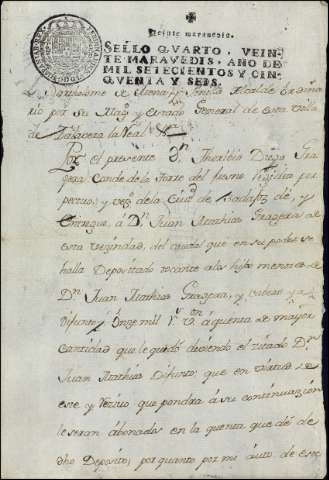 Veinte maravedis.
SELLO QVARTO, VEIN-
TE MARAVEDIS, AÑO DE
MIL SETECIENTOS Y CIN-
QVENTA Y SEIS.
Bartholome de Alcalde
por su Mag. y General de esta Villa
de Talavera la Real
Por el presente Dn. Diego Gra-
gera Conde de la Torre del fresno Rejidor per-
petuo, y de la Ciud. de Badajoz dé, y
entregue, á Dn. Juan Mathias Gragera de
esta vezindad, del caudal que en su poder se
halla Depositado tocante a los hijos menores de
Dn. Juan Mathias Gragera, ya
Difunto, mil rs. vn. á quenta de mayor
cantidad que le quedó deviendo el zitado Dn.
Juan Mathias Difunto; que en virtud de
este y Rezivo que pondrá á su continuacion
le seran abonados en la quenta que dé de
dho Deposito; por quanto por mi auto de este